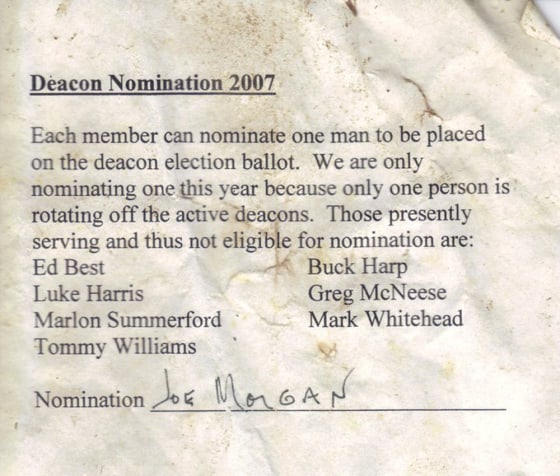 Deacon Nomination 2007
Each member can nominate one man to be placed
on the deacon election ballot.  We are only
nominating one this year because only one person is
rotating off the active deacons.  Those presently
serving and thus not eligible for nomination are:
Ed Best Buck Harp
Luke Harris Greg McNeese
Marlon Summerford Mark Whitehead
Tommy Williams
Nomination JOE MORGAN